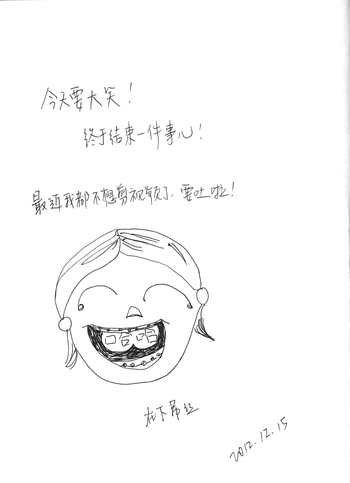 今天要大笑！
终于结束一件事儿！
最近我都不想剪视频了，要吐啦！
口合哈
在下吊丝
2012.12.15